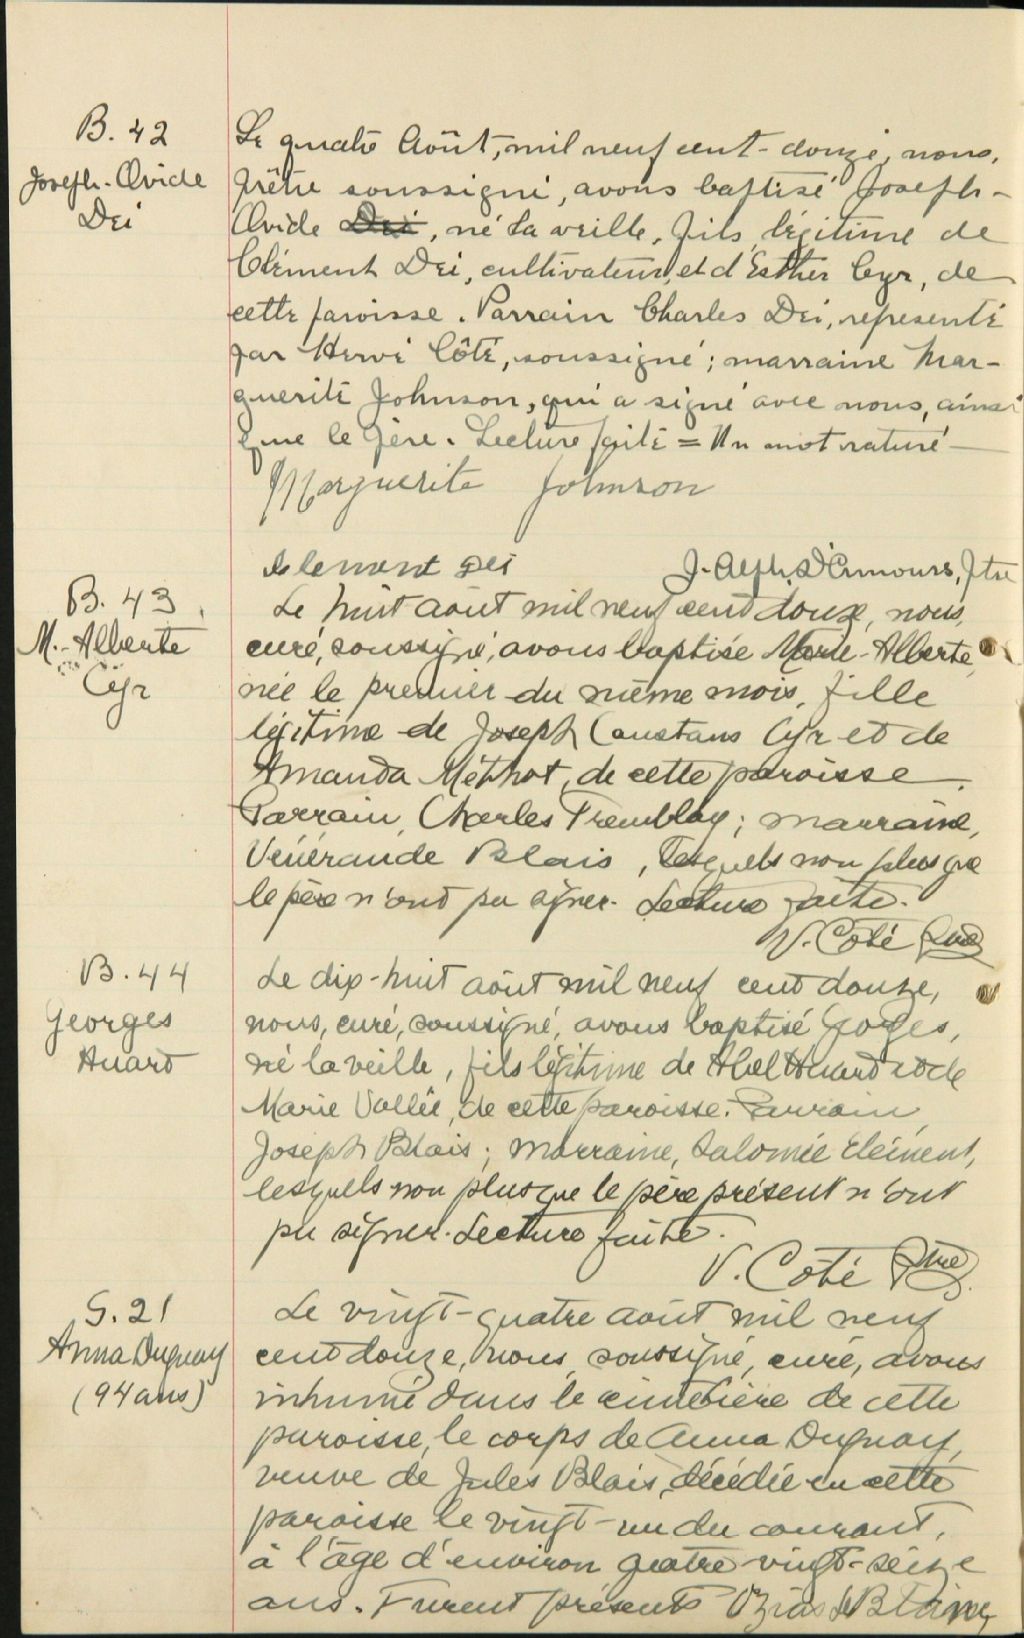 B. 42
Joseph-Ovide
Dei
Le quatre Août, mil neuf cent-douze, nous,
prêtre soussigné, avons baptisé Joseph-
Ovide Dei, né la veille, fils légitime de
Clément Dei, cultivateur, et d'Esther Cyr, de
cette paroisse. Parrain Charles Dei, représenté
par Hervé Côté, soussigné; marraine Mar-
guerite Johnson, qui a signé avec nous, ainsi
que le père. Lecture faite = Un mot raturé —
Marguerite Johnson
Clement Dei
J. Alph. D'Amours, Ptre
B. 43
M.-Alberte
Cyr
Le huit août mil neuf cent douze, nous,
curé, soussigné, avons baptisé Marie-Alberte,
née le premier du même mois, fille
légitime de Joseph Constans Cyr et de
Amanda Méthot, de cette paroisse.
Parrain, Charles Tremblay; marraine,
Vénérande Blais, lesquels non plus que
le père n'ont pu signer. Lecture faite.
V. Côté Ptre
B. 44
Georges
Huard
Le dix-huit août mil neuf cent douze,
nous, curé, soussigné, avons baptisé Georges,
né la veille, fils légitime de Abel Huard et de
Marie Vallée, de cette paroisse. Parrain,
Joseph Blais; marraine, Salomée Clément,
lesquels non plus que le père présent n'ont
pu signer. Lecture faite.
V. Côté Ptre
S. 21
Anna Duguay
(94 ans)
Le vingt-quatre août mil neuf
cent douze, nous, soussigné, curé, avons
inhumé dans le cimetière de cette
paroisse, le corps de Anna Duguay,
veuve de Jules Blais, décédée en cette
paroisse le vingt-un du courant,
à l'âge d'environ quatre-vingt-seize
ans. Furent présents Ozias LeBlanc,